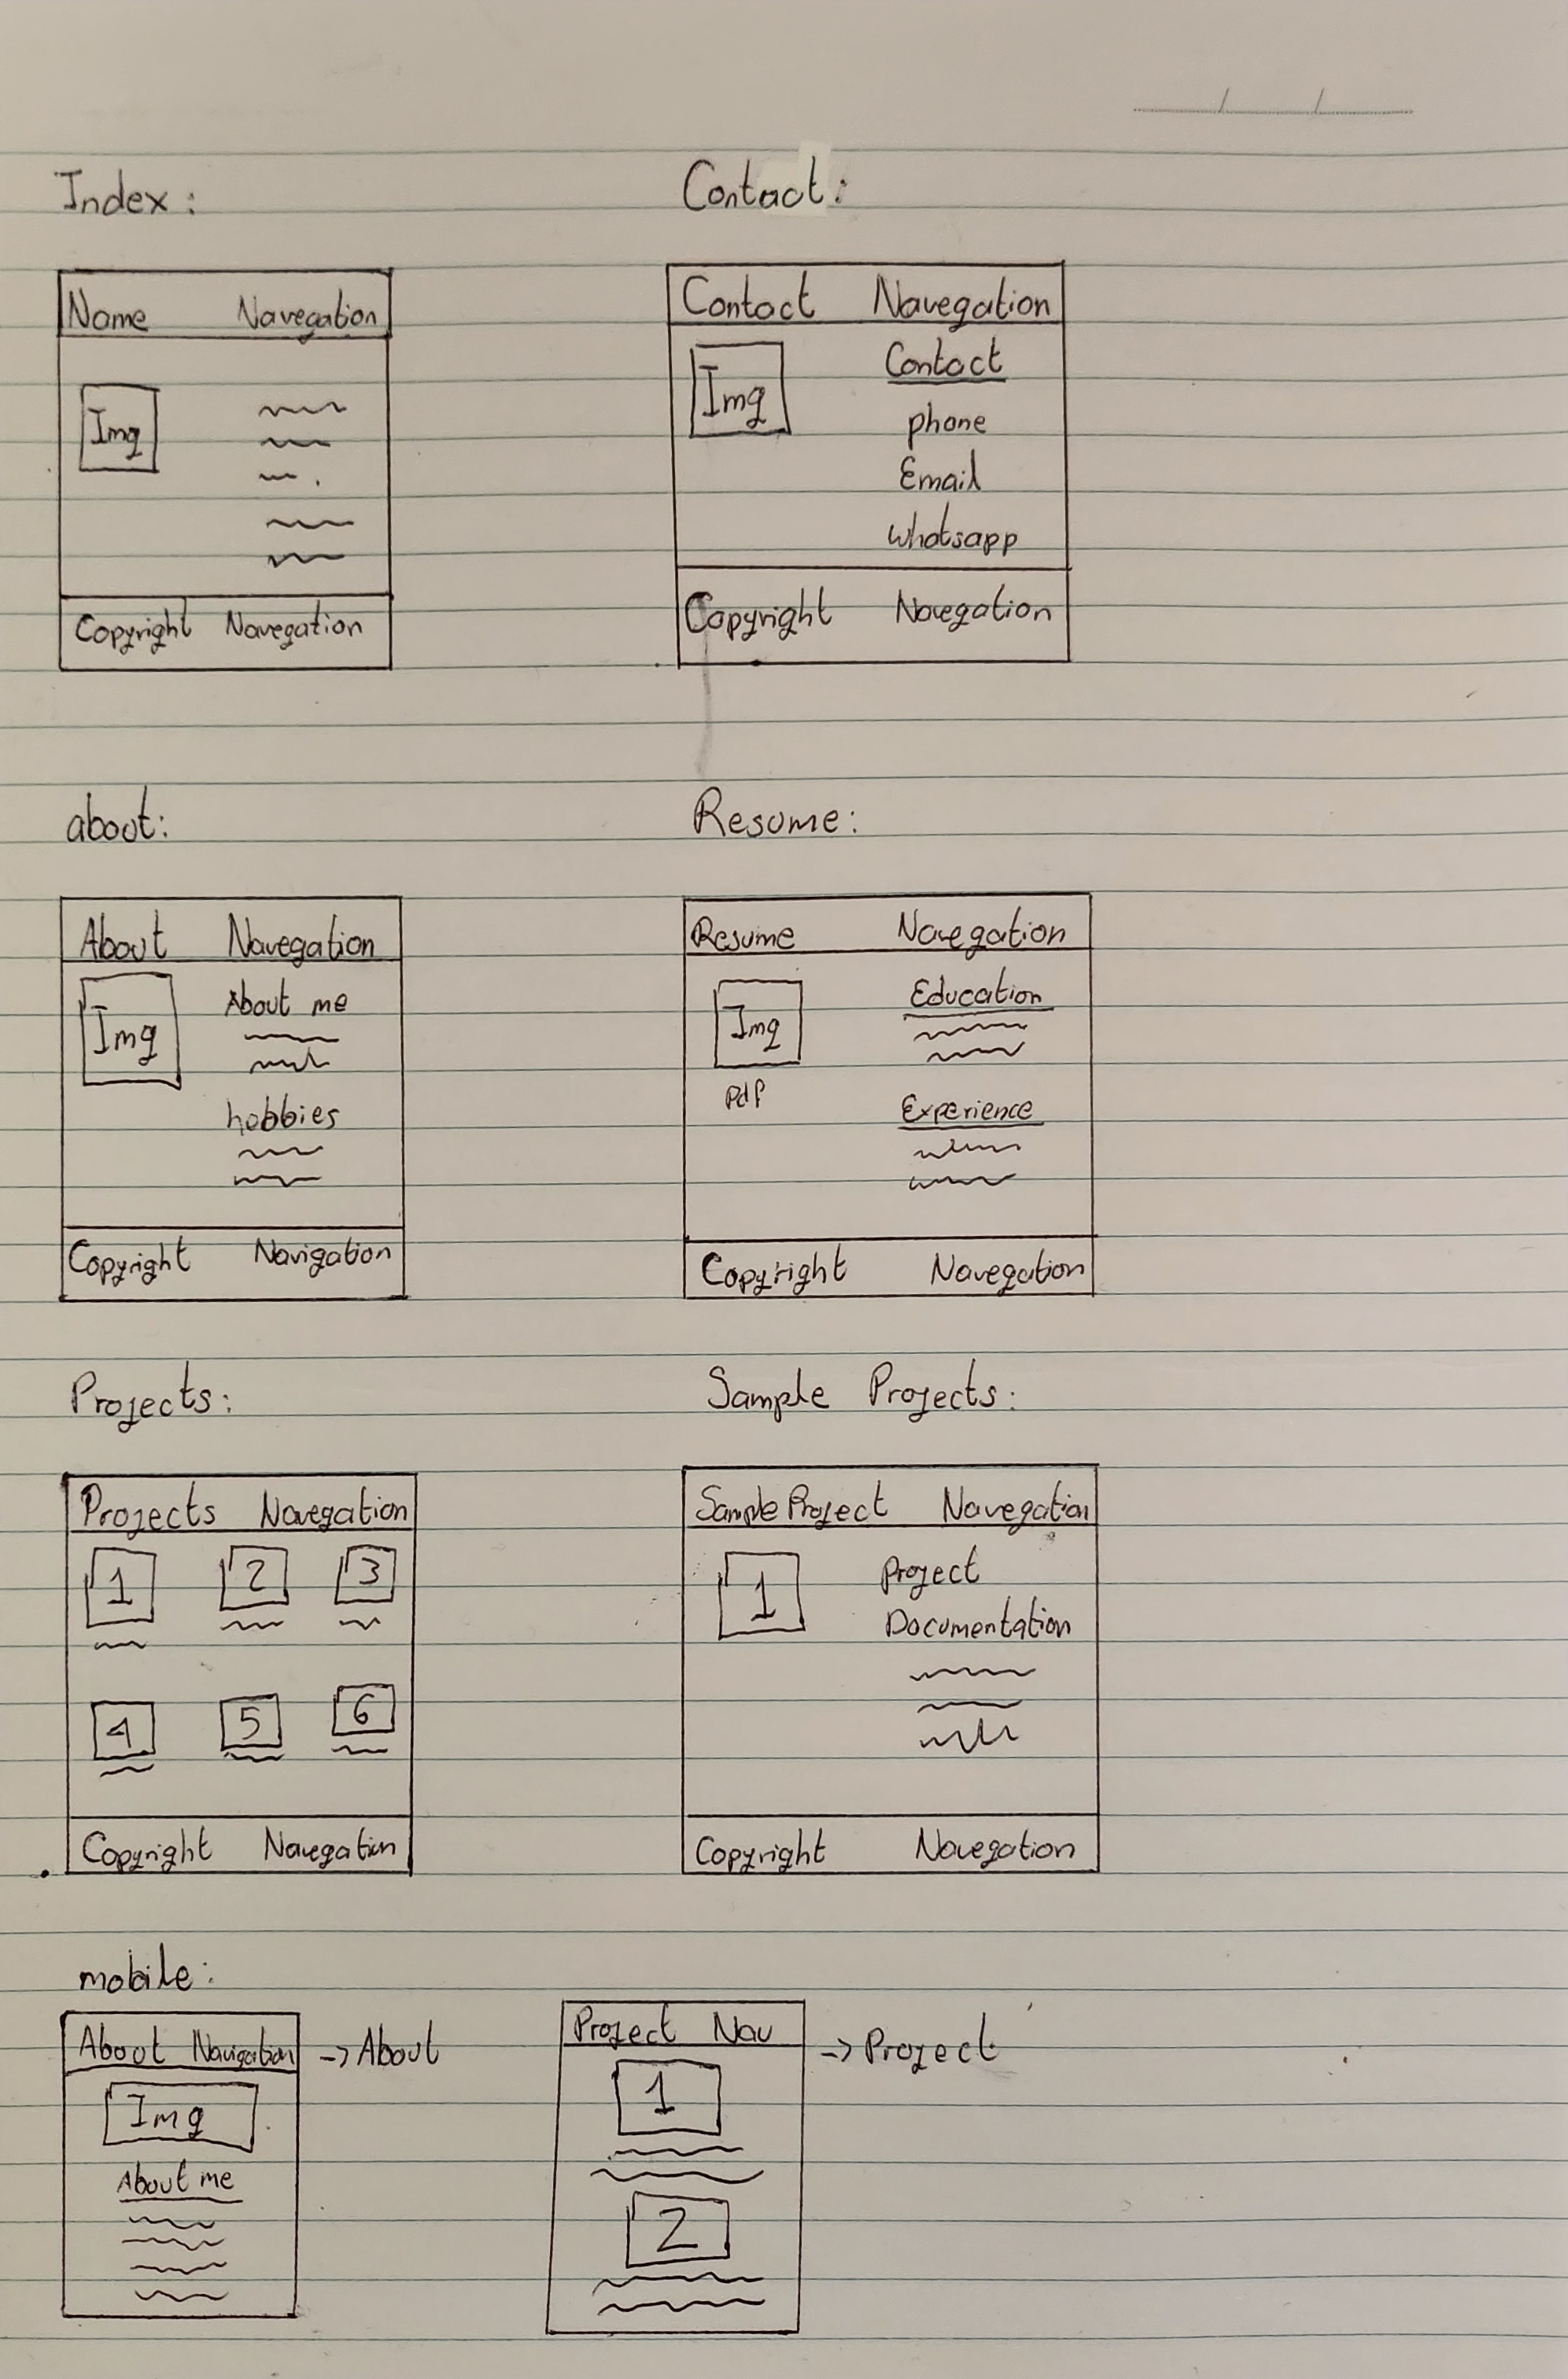 Index :
Name Navegation
Img
Copyright Navegation
Contact :
Contact Navegation
Img
Contact
phone
Email
whatsapp
Copyright Navegation
about:
About Navegation
Img
About me
hobbies
Copyright Navigation
Resume :
Resume Navegation
Img
Pdf
Education
Experience
Copyright Navegation
Projects :
Projects Navegation
1 2 3
4 5 6
Copyright Navegation
Sample Projects :
Sample Project Navegation
1
Project
Documentation
Copyright Navegation
mobile :
About Navigation -> About
Img
About me
Project Nav -> Project
1
2